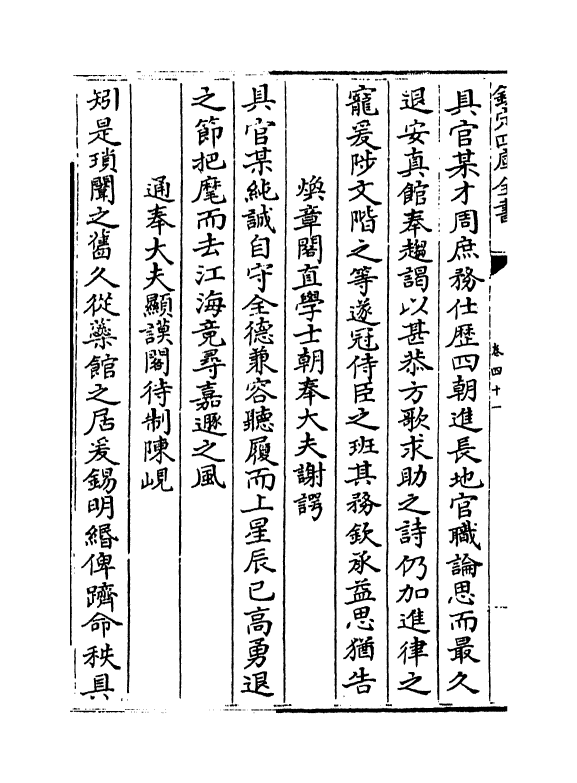 欽定四庫全書
卷四十一
具官某才周庶務仕歴四朝進長地官職論思而最久
退安真館奉趨謁以甚恭方歌求助之詩仍加進律之
寵爰陟文階之等遂冠侍臣之班其務欽承益思猶告
煥章閣直學士朝奉大夫謝諤
具官某純誠自守全德兼容聽履而上星辰已高勇退
之節把麾而去江海竟尋嘉遯之風
通奉大夫顯謨閣待制陳峴
矧是瑣闈之舊久從藥館之居爰錫明緡俾躋命秩具